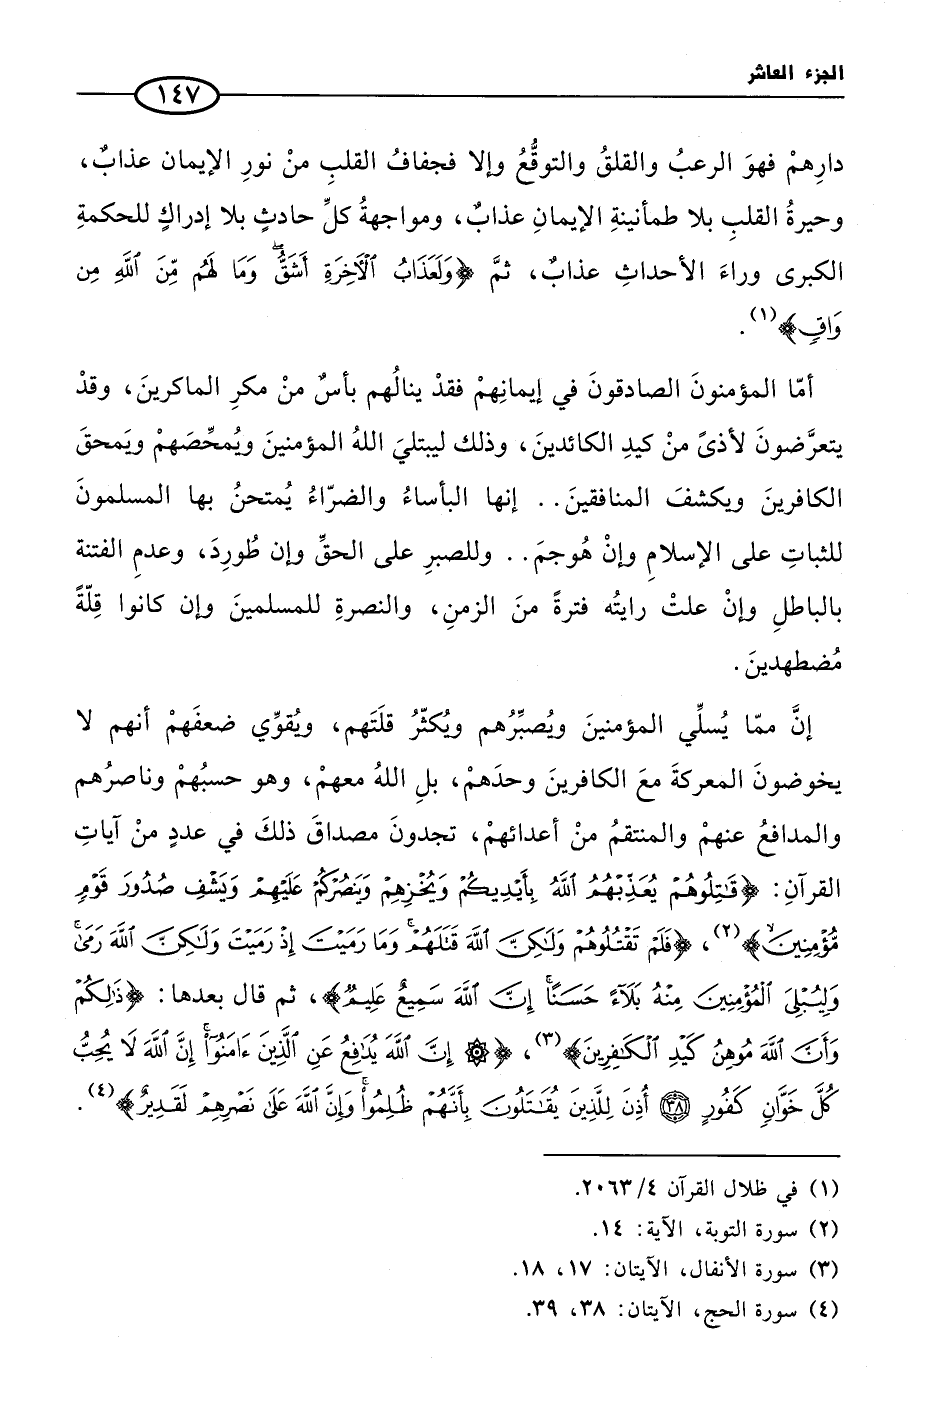 الجزء العاشر
١٤٧
دارِهمْ فهوَ الرعبُ والقلقُ والتوقُّعُ وإلا فجفافُ القلبِ منْ نورِ الإيمان عذابٌ،
وحيرةُ القلبِ بلا طمأنينةِ الإيمانِ عذابٌ، ومواجهةُ كلِّ حادثٍ بلا إدراكٍ للحكمةِ
الكبرى وراءَ الأحداثِ عذابٌ، ثمَّ ﴿وَلَعَذَابُ ٱلْآخِرَةِ أَشَقُّ ۖ وَمَا لَهُم مِّنَ ٱللَّهِ مِن
وَاقٍ﴾(١).
أمّا المؤمنونَ الصادقونَ في إيمانِهمْ فقدْ ينالُهم بأسٌ منْ مكرِ الماكرينَ، وقدْ
يتعرَّضونَ لأذىً منْ كيدِ الكائدينَ، وذلك ليبتليَ اللهُ المؤمنينَ ويُمحِّصَهمْ ويَمحقَ
الكافرينَ ويكشفَ المنافقينَ.. إنها البأساءُ والضرّاءُ يُمتحنُ بها المسلمونَ
للثباتِ على الإسلامِ وإنْ هُوجمَ.. وللصبرِ على الحقِّ وإن طُورِدَ، وعدمِ الفتنة
بالباطلِ وإنْ علتْ رايتُه فترةً منَ الزمنِ، والنصرةِ للمسلمينَ وإن كانوا قِلّةً
مُضطهدينَ.
إنَّ ممّا يُسلِّي المؤمنينَ ويُصبِّرُهم ويُكثّرُ قلتَهم، ويُقوِّي ضعفَهمْ أنهم لا
يخوضونَ المعركةَ معَ الكافرينَ وحدَهمْ، بلِ اللهُ معهمْ، وهو حسبُهمْ وناصرُهم
والمدافعُ عنهمْ والمنتقمُ منْ أعدائهمْ، تجدونَ مصداقَ ذلكَ في عددٍ منْ آياتِ
القرآنِ: ﴿قَٰتِلُوهُمْ يُعَذِّبْهُمُ ٱللَّهُ بِأَيْدِيكُمْ وَيُخْزِهِمْ وَيَنصُرْكُمْ عَلَيْهِمْ وَيَشْفِ صُدُورَ قَوْمٍ
مُّؤْمِنِينَ﴾(٢)، ﴿فَلَمْ تَقْتُلُوهُمْ وَلَٰكِنَّ ٱللَّهَ قَتَلَهُمْ ۚ وَمَا رَمَيْتَ إِذْ رَمَيْتَ وَلَٰكِنَّ ٱللَّهَ رَمَىٰ ۚ
وَلِيُبْلِىَ ٱلْمُؤْمِنِينَ مِنْهُ بَلَآءً حَسَنًا ۚ إِنَّ ٱللَّهَ سَمِيعٌ عَلِيمٌ﴾، ثم قال بعدها: ﴿ذَٰلِكُمْ
وَأَنَّ ٱللَّهَ مُوهِنُ كَيْدِ ٱلْكَٰفِرِينَ﴾(٣)، ﴿۞ إِنَّ ٱللَّهَ يُدَٰفِعُ عَنِ ٱلَّذِينَ ءَامَنُوٓا۟ ۗ إِنَّ ٱللَّهَ لَا يُحِبُّ
كُلَّ خَوَّانٍ كَفُورٍ ٣٨ أُذِنَ لِلَّذِينَ يُقَٰتَلُونَ بِأَنَّهُمْ ظُلِمُوا۟ ۚ وَإِنَّ ٱللَّهَ عَلَىٰ نَصْرِهِمْ لَقَدِيرٌ﴾(٤).
(١) في ظلال القرآن ٢٠٦٣/٤.
(٢) سورة التوبة، الآية: ١٤.
(٣) سورة الأنفال، الآيتان: ١٧، ١٨.
(٤) سورة الحج، الآيتان: ٣٨، ٣٩.